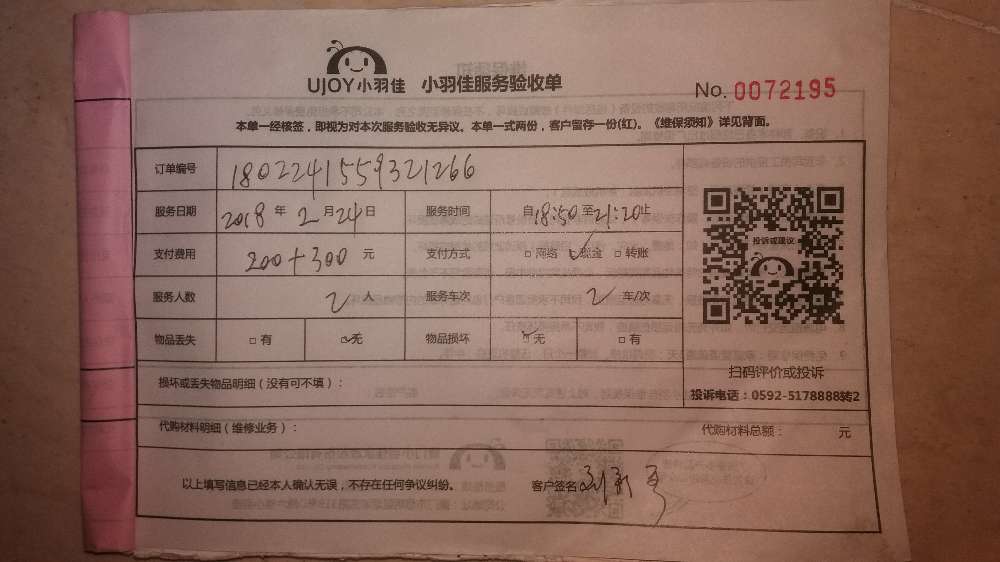 UJOY小羽佳 小羽佳服务验收单
No. 0072195
本单一经核签，即视为对本次服务验收无异议。本单一式两份，客户留存一份(红)。《维保须知》详见背面。
订单编号 1802241559321266
服务日期 2018 年 2 月 24 日 服务时间 自 18:50 至 21:20 止
支付费用 200+300 元 支付方式 □ 网络 ☑ 现金 □ 转账
投诉或建议
服务人数 2 人 服务车次 2 车/次
物品丢失 □ 有 ☑ 无 物品损坏 ☑ 无 □ 有
扫码评价或投诉
损坏或丢失物品明细（没有可不填）：
投诉电话：0592-5178888转2
代购材料明细（维修业务）： 代购材料总额： 元
以上填写信息已经本人确认无误，不存在任何争议纠纷。 客户签名